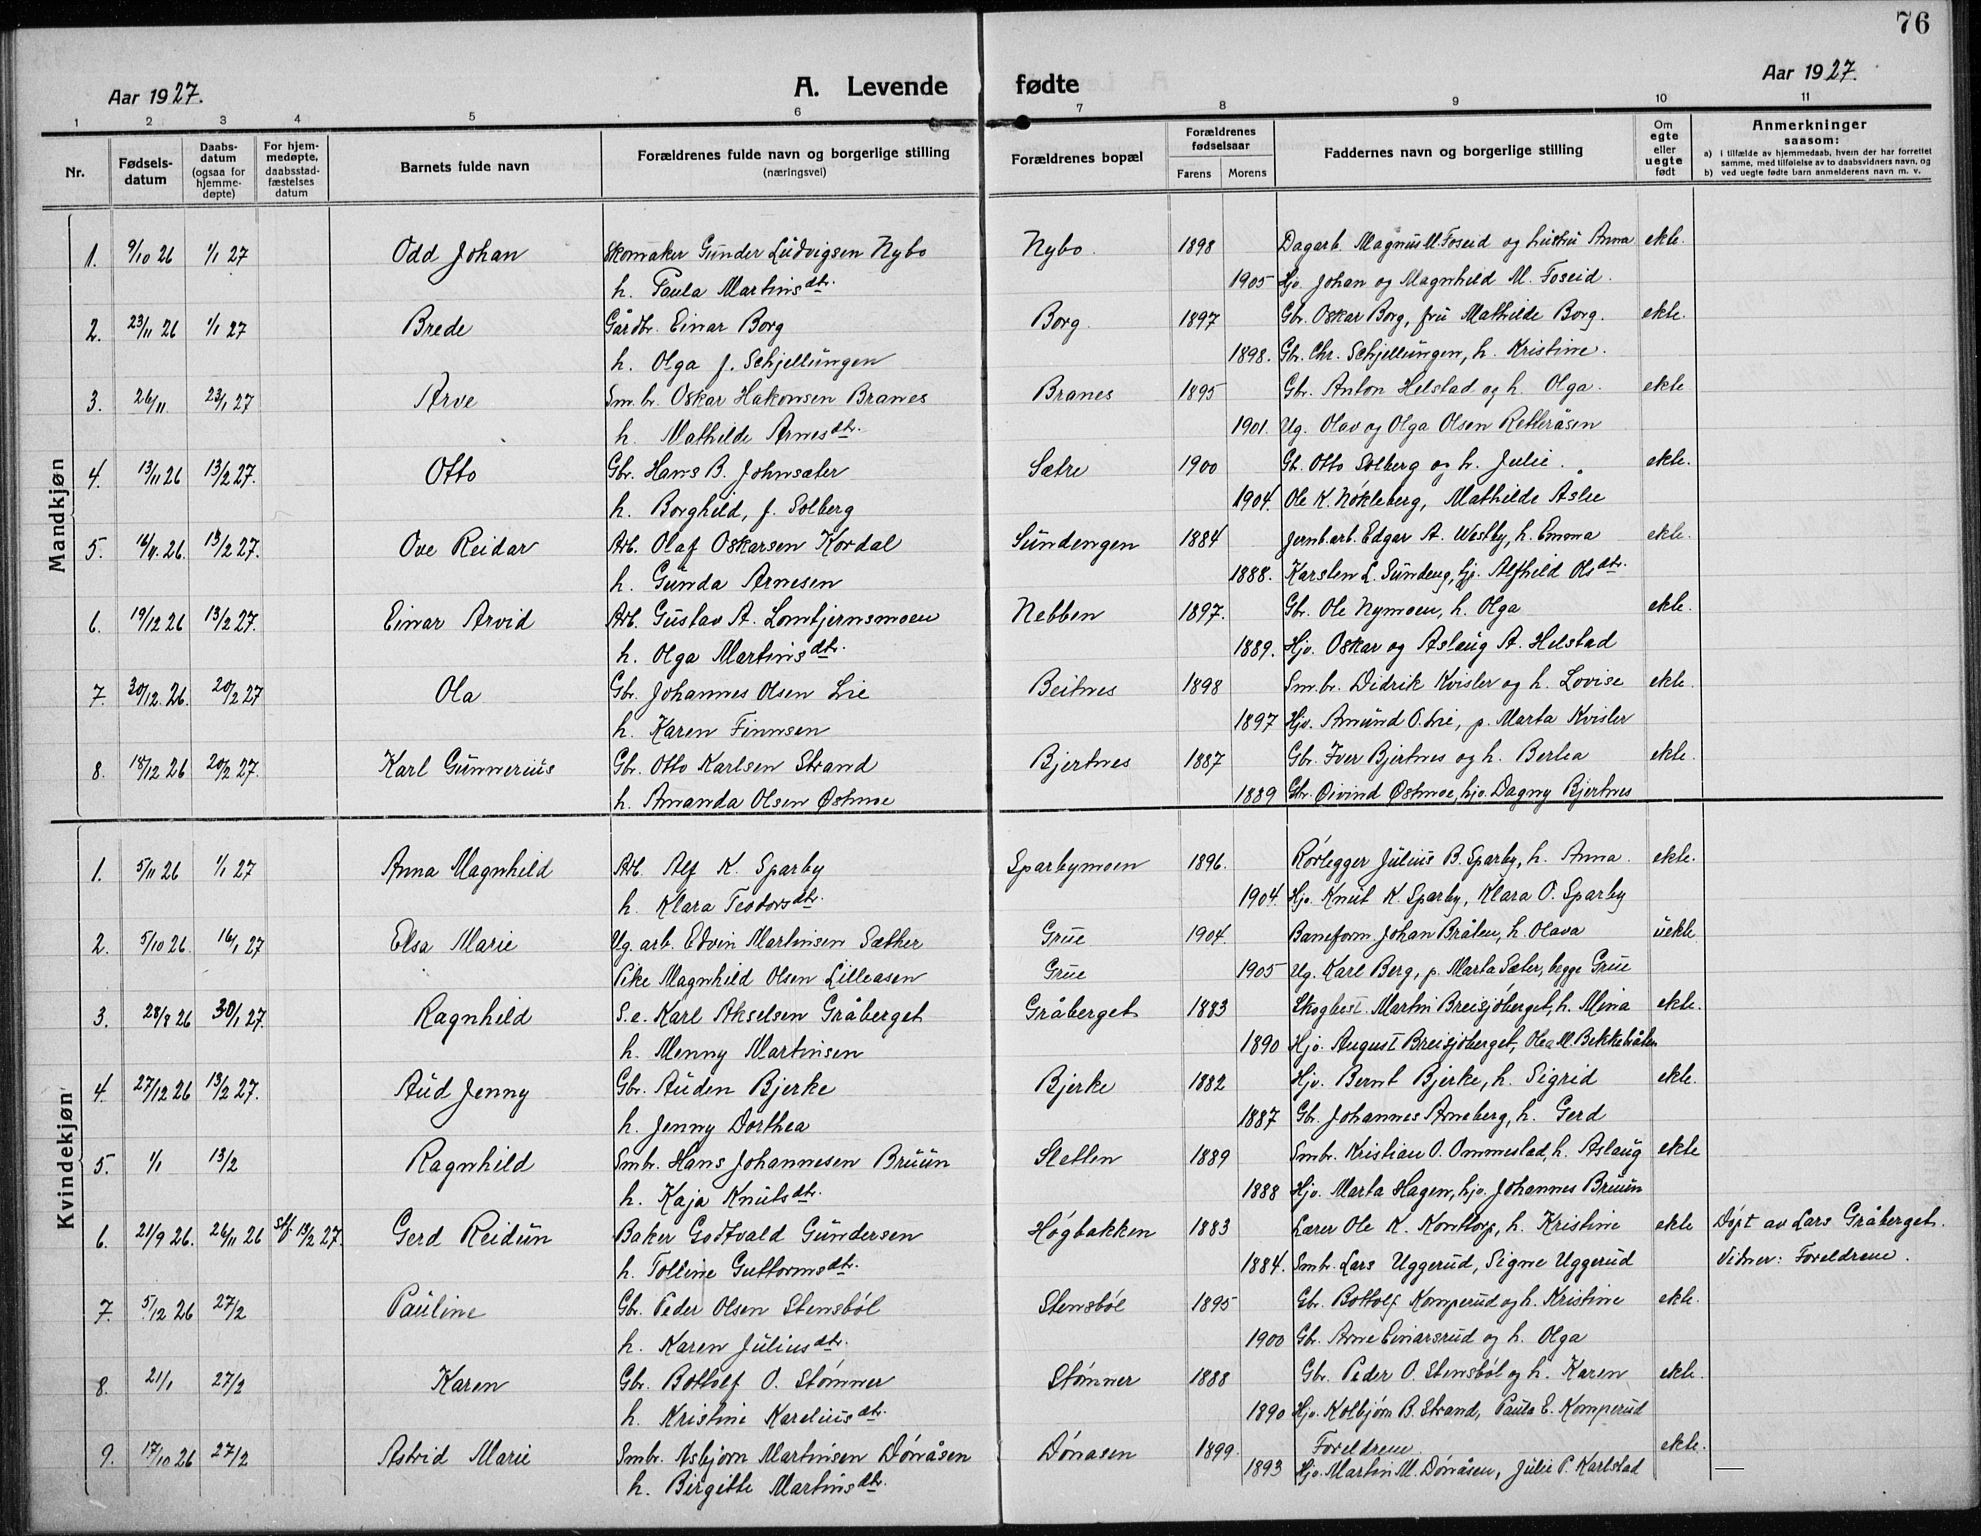 76
Aar 1927.
A. Levende fødte
Aar 1927.
1 2 3 4 5 6 7 8 9 10 11
Nr.
Fødsels-
datum
Daabs-
datum
(ogsaa for
hjemme-
døpte)
For hjem-
medøpte,
daabsstad-
fæstelses
datum
Barnets fulde navn
Forældrenes fulde navn og borgerlige stilling
(næringsvei)
Forældrenes bopæl
Forældrenes
fødselsaar
Farens Morens
Faddernes navn og borgerlige stilling
Om
egte
eller
uegte
født
Anmerkninger
saasom:
a) i tilfælde av hjemmedaab, hvem der har forrettet
samme, med tilføielse av to daabsvidners navn, og
b) ved uegte fødte barn anmelderens navn m. v.
Mandkjøn
1. 9/10 26 1/1 27 Odd Johan Skomaker Gunder Ludvigsen Nybo Nybo. 1898 Dagarb. Magnus M. Foseid og hustru Anna ekte.
h. Paula Martinsdtr. 1905 Hjv. Johan og Magnhild M. Foseid.
2. 23/11 26 1/1 27 Brede Gårdbr. Einar Borg Borg. 1897 Gbr. Oskar Borg, fru Mathilde Borg. ekte.
h. Olga f. Schjellungen 1898. Gbr. Chr. Schjellungen, h. Kristine.
3. 26/11 23/1 27 Arve Sm.br. Oskar Hakonsen Branes Branes 1895 Gbr. Anton Helstad og h. Olga. ekte
h. Mathilde Arnesdtr. 1901. Ug. Olav og Olga Olsen Retteråsen
4. 13/11 26 13/2 27. Otto Gbr. Hans B. Johnsæter Sætre 1900 Gb. Otto Solberg og h. Julie. ekte.
h. Borghild, f. Solberg 1904. Ole K. Nökleberg, Mathilde Aslie
5. 16/11. 26. 13/2 27. Ove Reidar Arb. Olaf Oskarsen Kordal Sundengen 1884 Jernb.arb. Edgar A. Westby, h. Emma ekte.
h. Gunda Arnesen 1888. Karsten L. Sundeng, hjv. Alfhild Olsdtr.
6. 19/12 26 13/2 27. Einar Arvid Arb. Gustav A. Lomtjernsmoen Nebben 1897. Gbr. Ole Nymoen, h. Olga ekte.
h. Olga Martinsdtr. 1889. Hjv. Oskar og Aslaug A. Helstad
7. 30/12. 26. 20/2 27 Ola Gbr. Johannes Olsen Lie Beitnes 1898 Sm.br. Didrik Kvisler og h. Lovise ekte.
h. Karen Finnsen 1897 Hjv. Amund O. Lie, p. Marta Kvisler
8. 18/12 26 20/2 27. Karl Gunnerius Gbr. Otto Karlsen Strand Bjertnes 1887 Gbr. Iver Bjertnes og h. Bertea ekte.
h. Amanda Olsen Østmoe 1889 Gbr. Øivind Østmoe, hjv. Dagny Bjertnes
Kvindekjøn
1. 5/11 26 1/1 27 Anna Magnhild Arb. Alf K. Sparby Sparbymoen 1896. Rørlegger Julius B. Sparby, h. Anna. ekte.
h. Klara Teodorsdtr. 1904. Hjv. Knut K. Sparby, Klara O. Sparby
2. 5/10 26. 16/1 27 Elsa Marie Ug. arb. Edvin Martinsen Sæther Grue 1904. Baneform. Johan Bråten, h. Olava uekte
Pike Magnhild Olsen Lilleasen Grue 1905 Ug. Karl Berg, p. Marta Sæter, begge Grue
3. 28/8 26 30/1 27. Ragnhild S.e. Karl Akselsen Gråberget Gråberget 1883 Skogbest. Martin Breisjøberget, h. Mina ekte.
h. Menny Martinsen 1890 Hjv. August Breisjøberget, Olea M. Bekkebråten
4. 27/12 26 13/2 27. Aud Jenny Gbr. Auden Bjerke Bjerke 1882 Hjv. Bernt Bjerke, h. Sigrid ekte.
h. Jenny Dorthea 1887 Gbr. Johannes Arneberg, h. Gerd
5. 1/1 13/2 Ragnhild Smbr. Hans Johannesen Bruun Sletten 1889 Smbr. Kristian O. Ommestad, h. Aslaug ekte
h. Kaja Knutsdtr. 1888 Hjv. Marta Hagen, hjv. Johannes Bruun
6. 21/9 26. 26/11 26 stf. 13/2 27. Gerd Reidun Baker Godtvald Gundersen Høgbakken 1883 Lærer Ole K. Komtorp, h. Kristine ekte Døpt av Lars Gråberget.
h. Tolline Guttormsdtr. 1884. Smbr. Lars Uggerud, Signe Uggerud Vidner: Foreldrene.
7. 5/12 26 27/2 Pauline Gbr. Peder Olsen Stensböl Stensböl 1895 Gbr. Bottolf Komperud og h. Kristine ekte.
h. Karen Juliusdtr. 1900 Gbr. Arne Einarsrud og h. Olga
8. 21/1 27/2 Karen Gbr. Bottolf O. Stømner Stømner 1888 Gbr. Peder O. Stensböl og h. Karen ekte.
h. Kristine Kareliusdtr. 1890 Hjv. Kolbjørn B. Strand, Paula E. Komperud
9. 17/10 26 27/2 Astrid Marie Smbr. Asbjørn Martinsen Dönåsen Dönasen 1899. Foreldrene. ekte.
h. Birgitte Martinsdtr. 1893 Hjv. Martin M. Dönåsen, Julie P. Karlstad